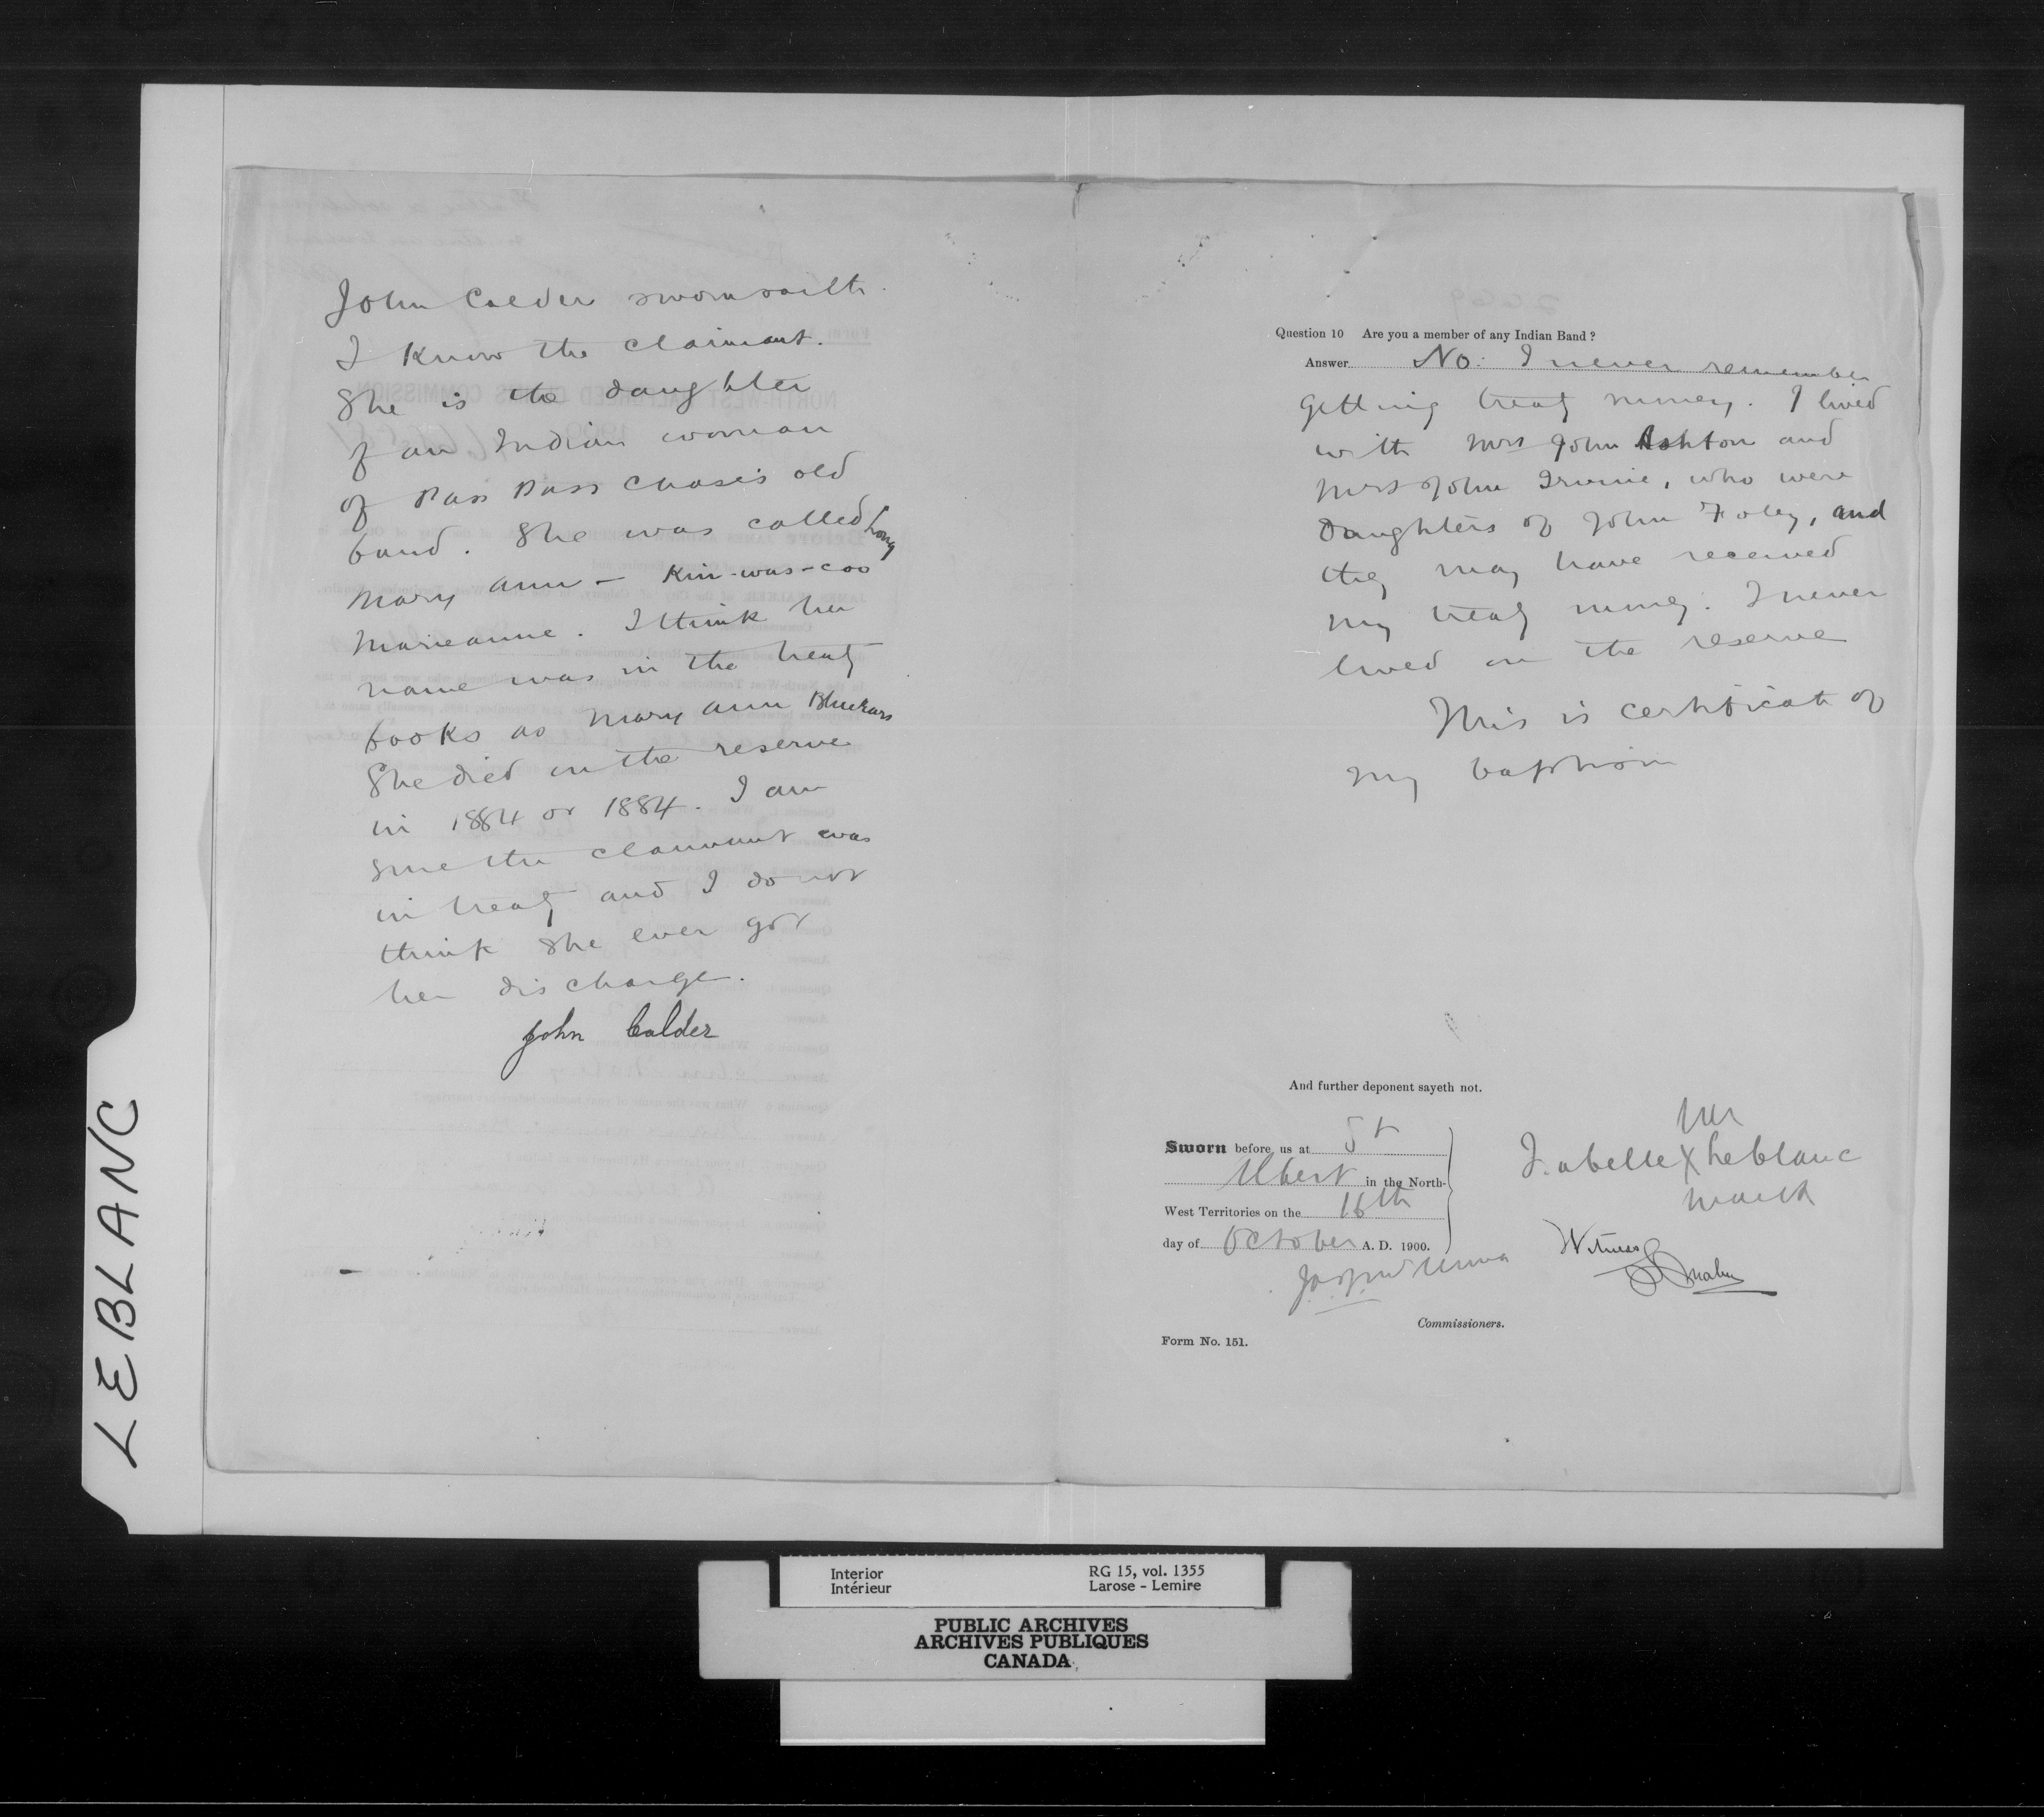 John Calder sworn saith.
I know the claimant.
She is the daughter
of an Indian woman
of Pass Pass Chases old
band. She was called Long
Mary Ann – Kin-was-coo
Marieanne. I think her
name was in the treaty
books as Mary Ann
She died on the reserve
in 1884 or 1884. I am
sure the claimant was
in treaty and I do not
think she ever got
her discharge.
John Calder
Question 10 Are you a member of any Indian Band?
Answer No. I never remember
getting treaty money. I lived
with Mrs John Ashton and
Mrs John Irvine, who were
daughters of John Foley, and
they may have received
my treaty money. I never
lived on the reserve
This is certificate of
my baptism
And further deponent sayeth not.
Sworn before us at St
Albert in the North-
West Territories on the 16th
day of October A. D. 1900.
her
Isabelle X Leblanc
mark
Witness
Commissioners.
Form No. 151.
LEBLANC
Interior
Intérieur
RG 15, vol. 1355
Larose - Lemire
PUBLIC ARCHIVES
ARCHIVES PUBLIQUES
CANADA